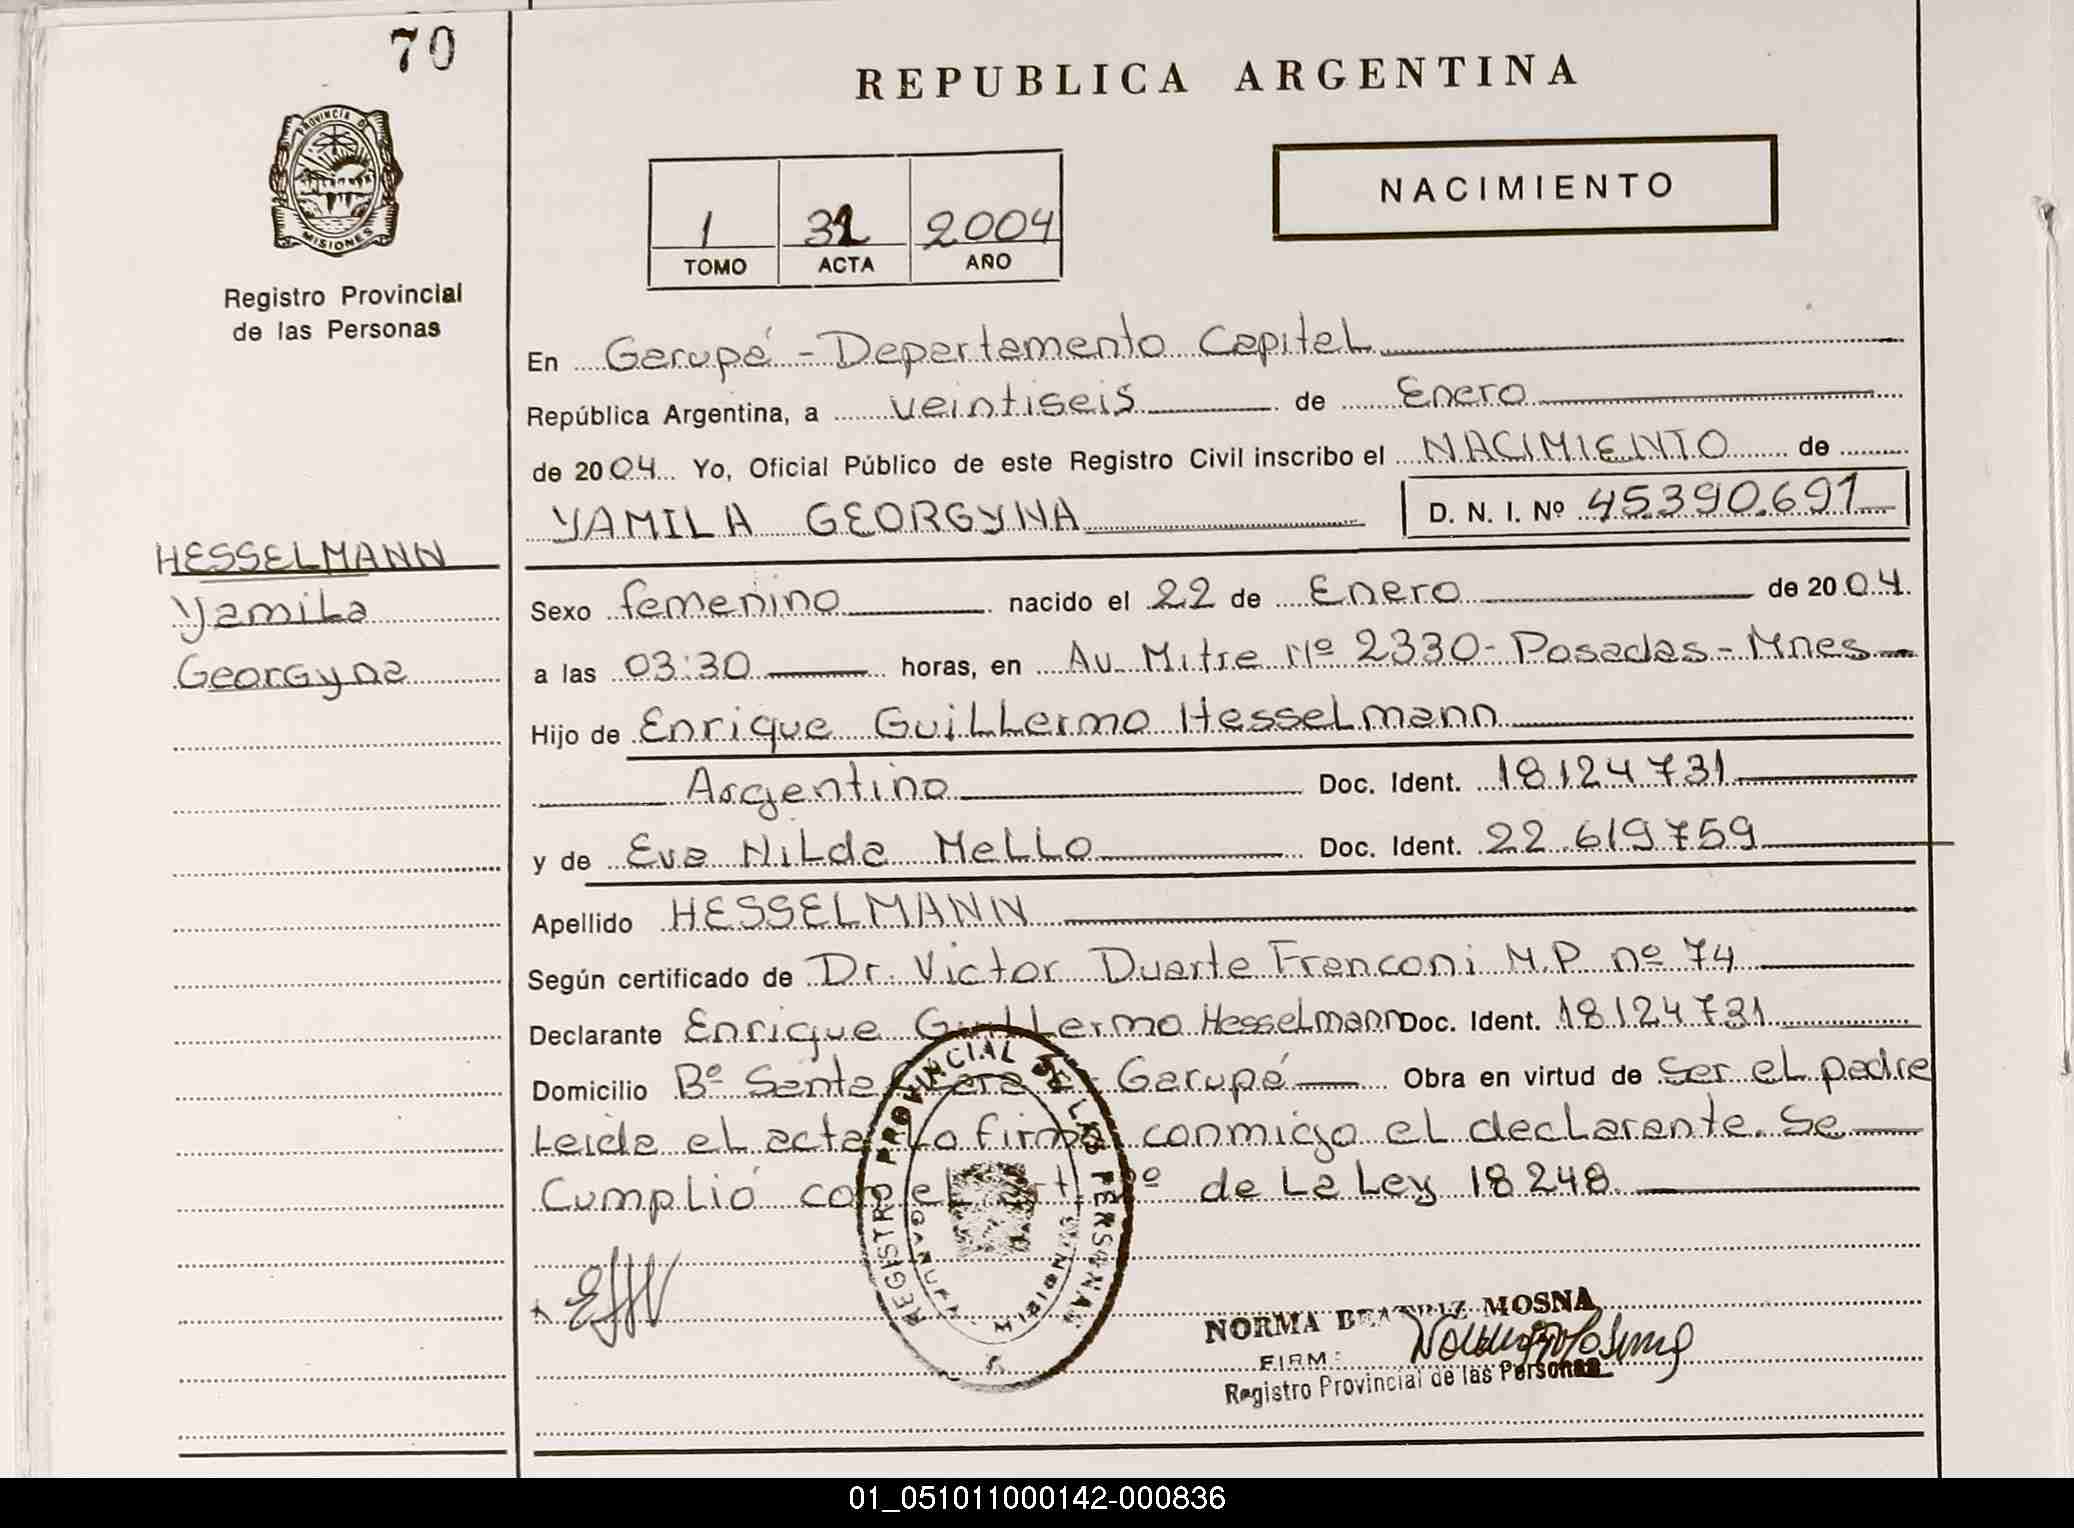 70
REPUBLICA ARGENTINA
PROVINCIA DE
MISIONES
Registro Provincial
de las Personas
NACIMIENTO
1 31 2004
TOMO ACTA AÑO
En Garupá - Departamento Capital
República Argentina, a veintiseis de Enero
de 2004 Yo, Oficial Público de este Registro Civil inscribo el NACIMIENTO de
YAMILA GEORGYNA D. N. I. Nº 45.390.691
HESSELMANN
Yamila
Georgyna
Sexo femenino nacido el 22 de Enero de 2004.
a las 03:30 horas, en Av. Mitre Nº 2330 - Posadas - Mnes
Hijo de Enrique Guillermo Hesselmann
Argentino Doc. Ident. 18.124.731
y de Eva Nilda Mello Doc. Ident. 22.619.759
Apellido HESSELMANN
Según certificado de Dr. Victor Duarte Franconi M.P. nº 74
Declarante Enrique Guillermo Hesselmann Doc. Ident. 18.124.731
Domicilio Bº Santa Clara - Garupá Obra en virtud de ser el padre
Leida el acta La firma conmigo el declarante. Se
Cumplió con el de La Ley 18248.
REGISTRO PROVINCIAL DE LAS PERSONAS
NORMA BEATRIZ MOSNA
Registro Provincial de las Personas
01_051011000142-000836